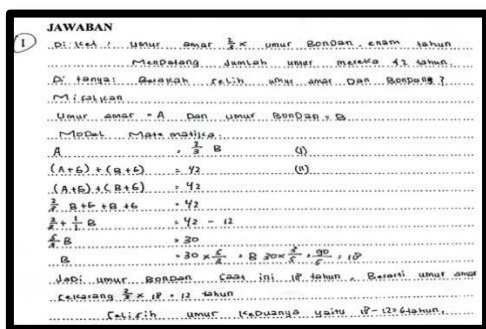 JAWABAN
1 Di ket : umur amar 2/3 x umur Bondan. enam tahun
Mendatang Jumlah umur mereka 42 tahun.
Di tanya: Berapakah selih umur amar Dan Bondang ?
Misalkan
Umur amar = A Dan umur Bondan = B
Model Matematika.
A = 2/3 B (I)
(A+6) + (B+6) = 42 (II)
(A+6) + (B+6) = 42
2/3 B+6 +B +6 = 42
2/3 + 1/1 B = 42 - 12
5/3 B = 30
B = 30 x = B 30x 3/5 = 90/5 = 18
Jadi umur Bondan saat ini 18 tahun. Berarti umur amar
sekarang 2/3 x 18 = 12 tahun
Selisih umur keduanya yaitu 18-12=6tahun.